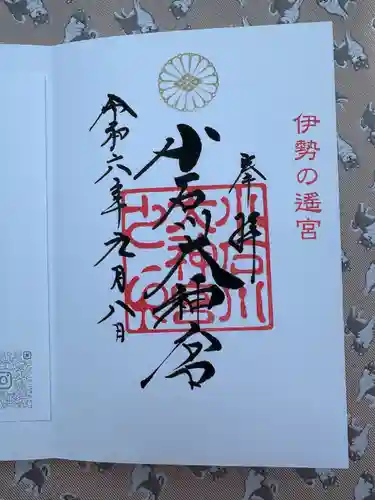 伊勢の遥宮
奉拝
小石川大神宮
令和六年九月八日